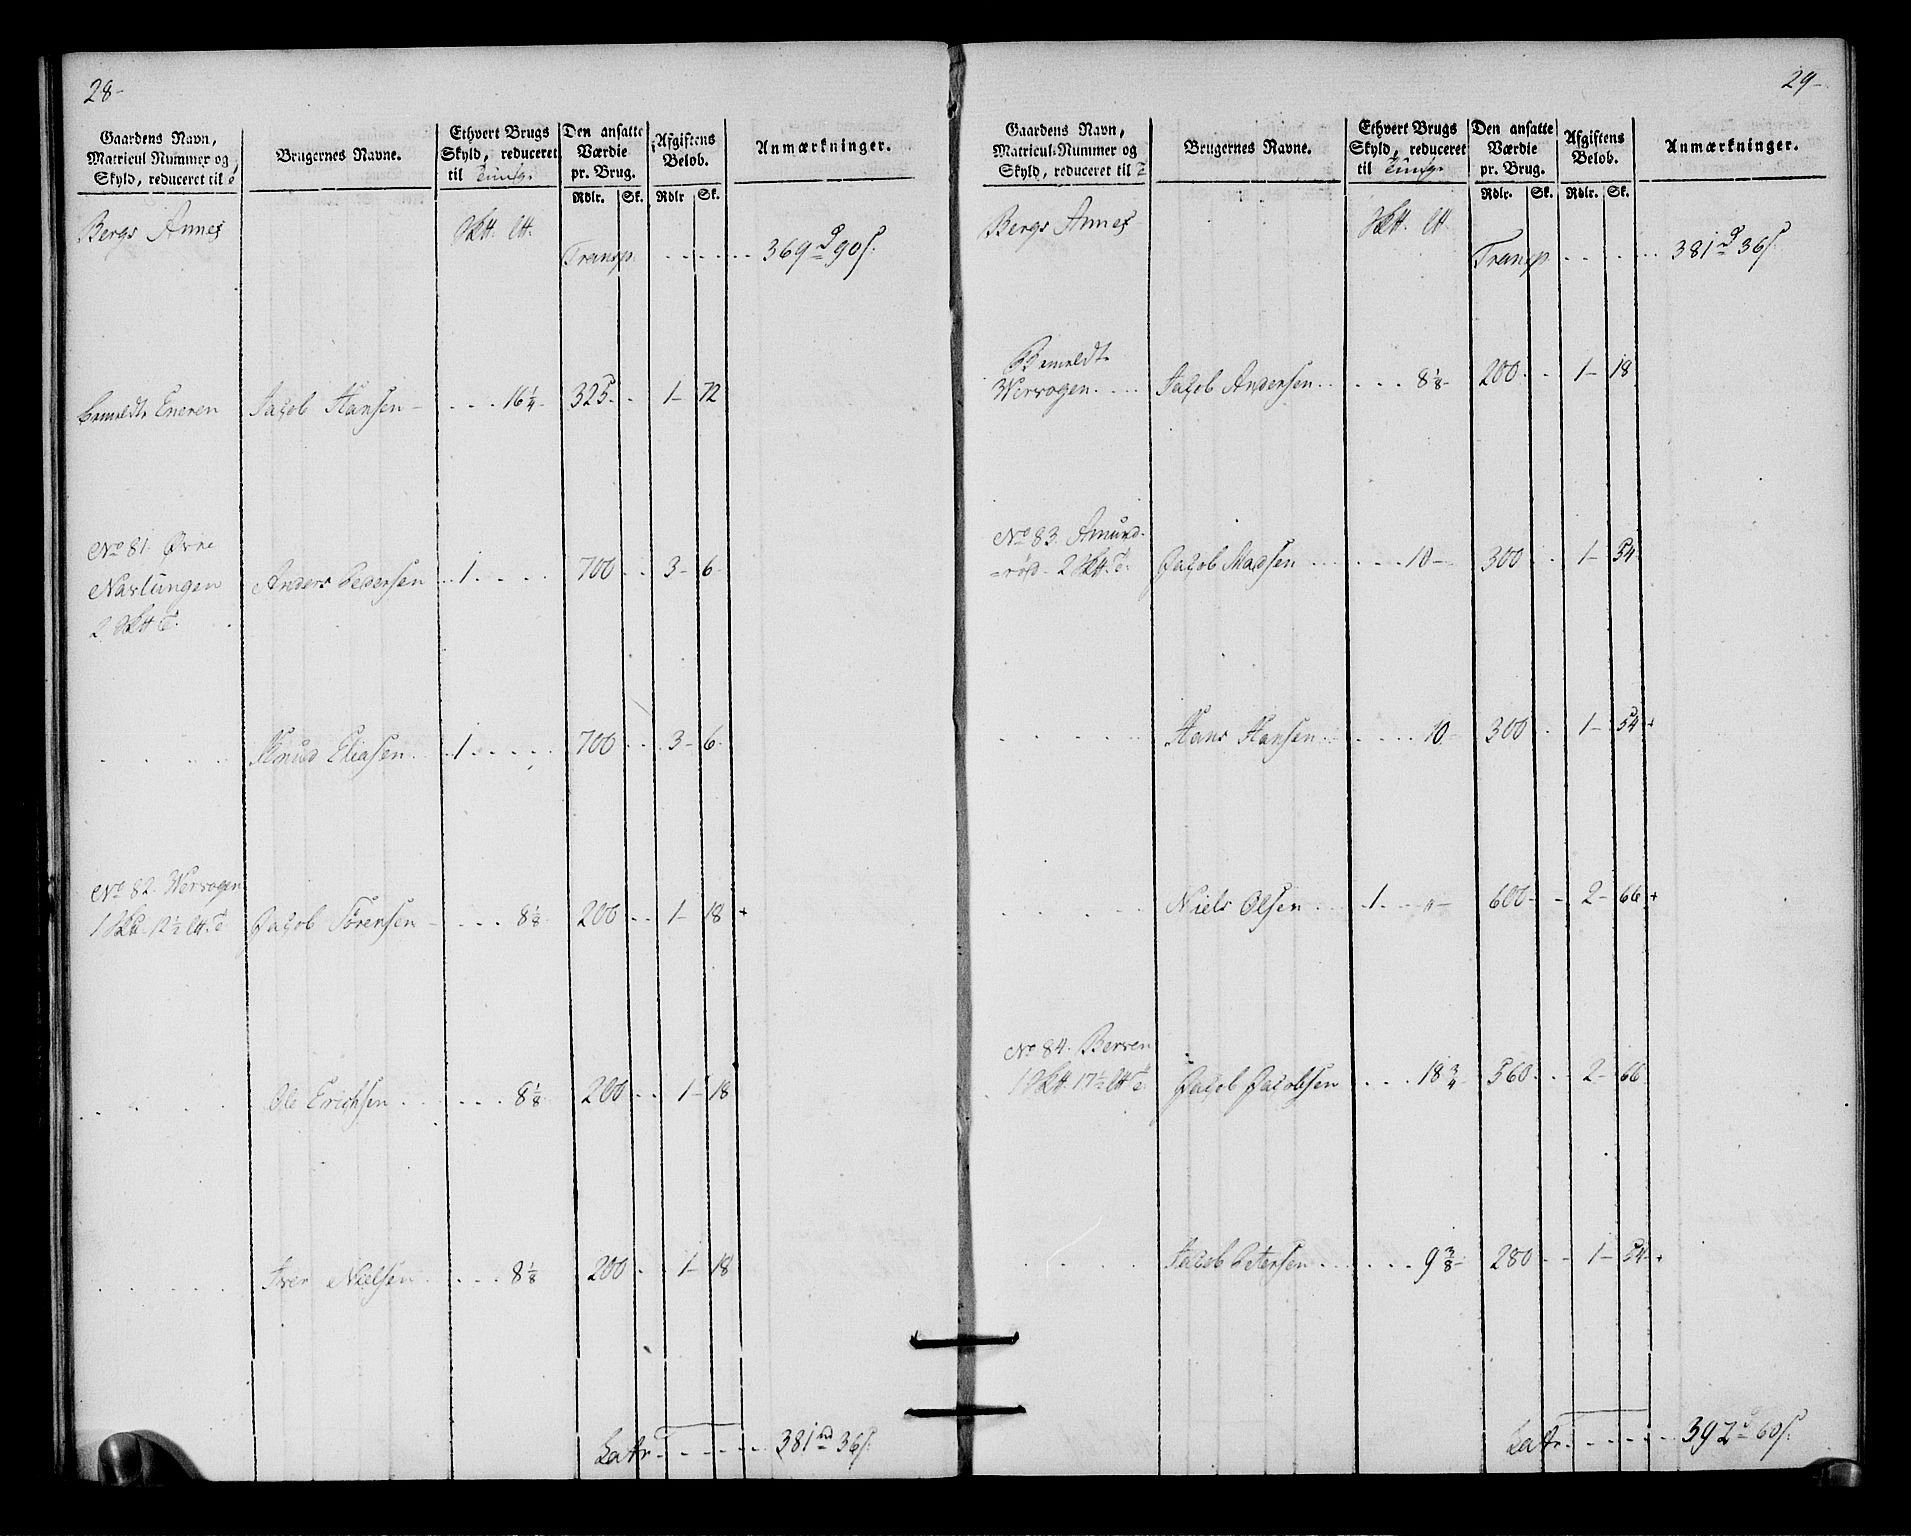 28-
Gaardens Navn,
Matricul Nummer og
Skyld, reduceret til
Brugernes Navne.
Ethvert Brugs
Skyld, reduceret
til Tunge
Den ansatte
Værdie
pr. Brug.
Rdlr. Sk.
Afgiftens
Beløb.
Rdlr Sk.
Anmærkninger.
Bergs Annex
Transp. 369 90
bemeldte Eneren Jacob Hansen 16¼ 325 1 72
No 81. Øvre
Narlungen Anders Pedersen 1 700 3 6
2
Knud Eliasen 1 700 3 6
No 82. Wervogen
1 12½ Jacob Sörensen 8⅛ 200 1 18 +
Ole Erichsen 8⅛ 200 1 18
Iver Nielsen 8⅛ 200 1 18
Latr. 381 36
29-
Gaardens Navn,
Matricul-Nummer og
Skyld, reduceret til
Brugernes Navne.
Ethvert Brugs
Skyld, reduceret
til Tunge
Den ansatte
Værdie
pr. Brug.
Rdlr. Sk.
Afgiftens
Beløb.
Rdlr. Sk.
Anmærkninger.
Bergs Annex
Transp 381 36
Bemeldte
Wervogen Jacob Andersen 8⅛ 200 1 18
No 83. Amund-
=röd 2 Jacob Madsen 10 300 1 54
Hans Hansen 10 300 1 54 +
Niels Olsen 1 " 600 2 66 +
No 84. Berven
1 17½ Jacob Jacobsen 18¾ 560 2 66
Jacob Petersen 9⅜ 280 1 54 +
Latr. 392 60